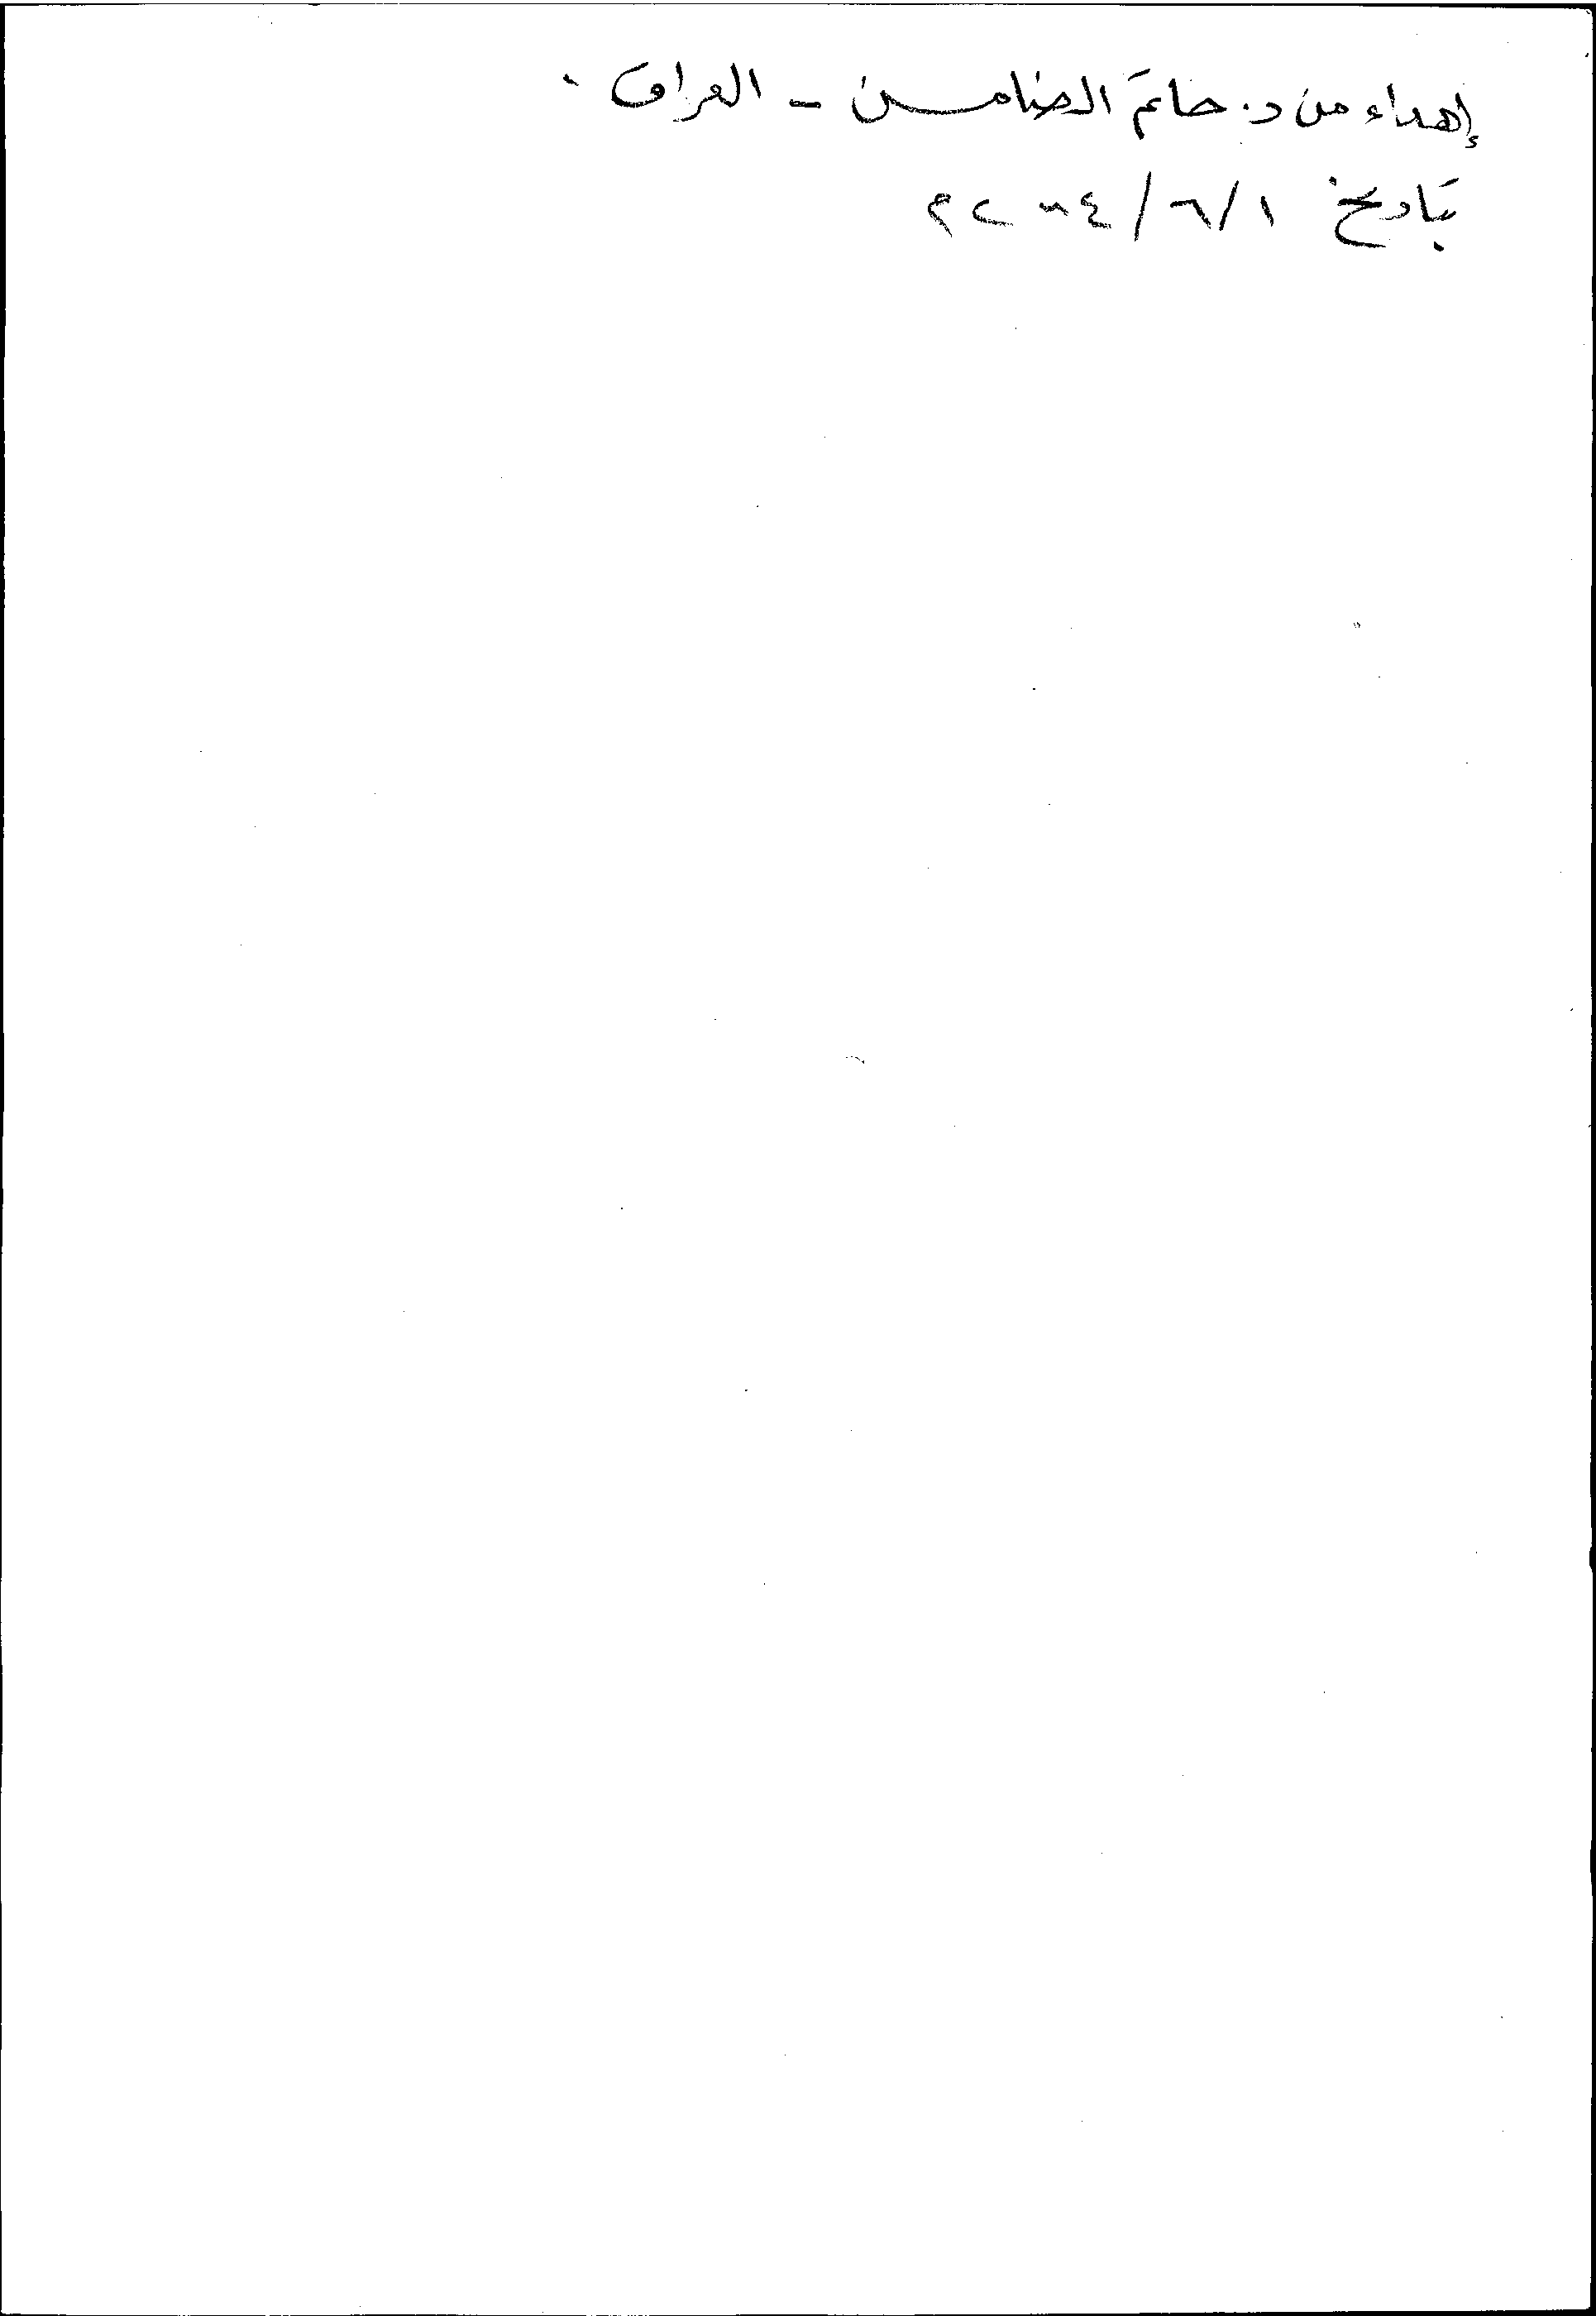 إهداء من د. حاتم الضامن - العراق.
بتاريخ ١/٦/٢٠٠٤م